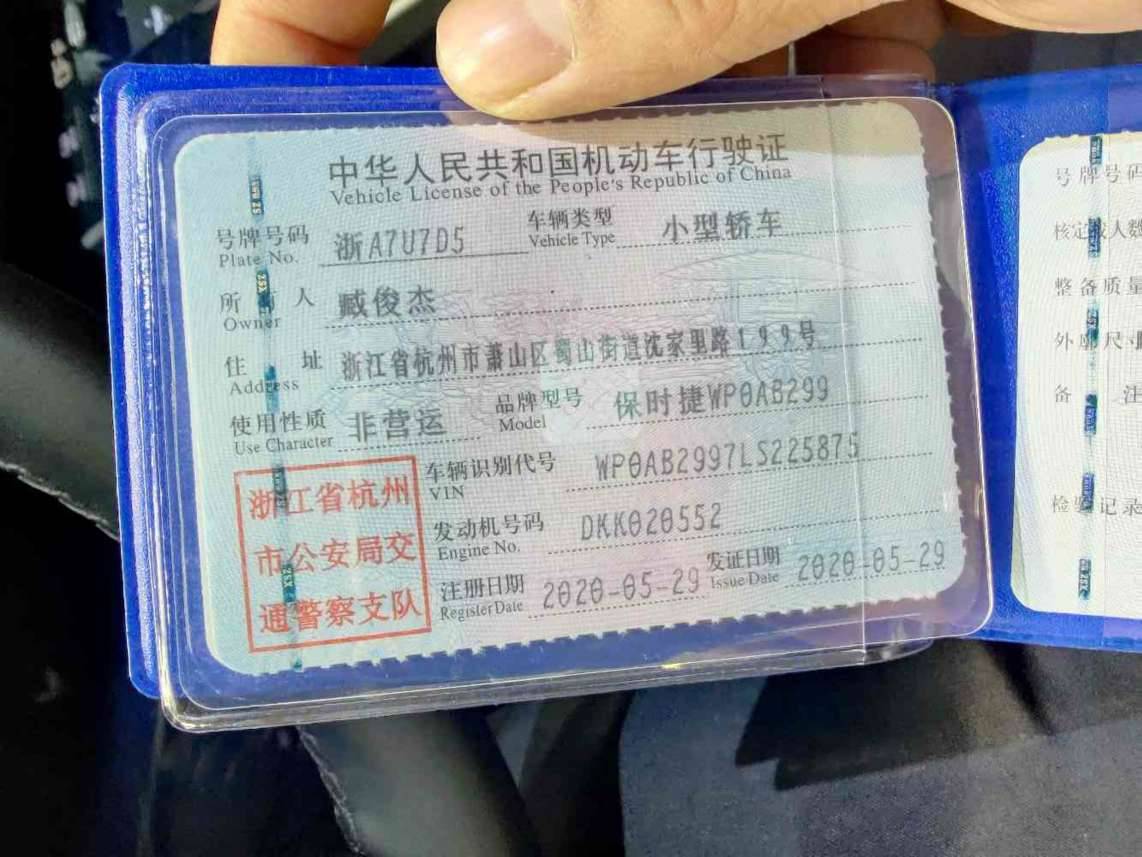 中华人民共和国机动车行驶证
Vehicle License of the People's Republic of China
号牌号码 浙A7U7D5 车辆类型 小型轿车
Plate No. Vehicle Type
所 人 臧俊杰
Owner
住 址 浙江省杭州市萧山区蜀山街道沈家里路199号
Address
使用性质 非营运 品牌型号 保时捷WP0AB299
Use Character Model
车辆识别代号 WP0AB2997LS225875
VIN
发动机号码 DKK020552
Engine No.
注册日期 2020-05-29 发证日期 2020-05-29
Register Date Issue Date
浙江省杭州
市公安局交
通警察支队
号牌号码
核定 人数
整备质量
外 尺
备 注
检 记录